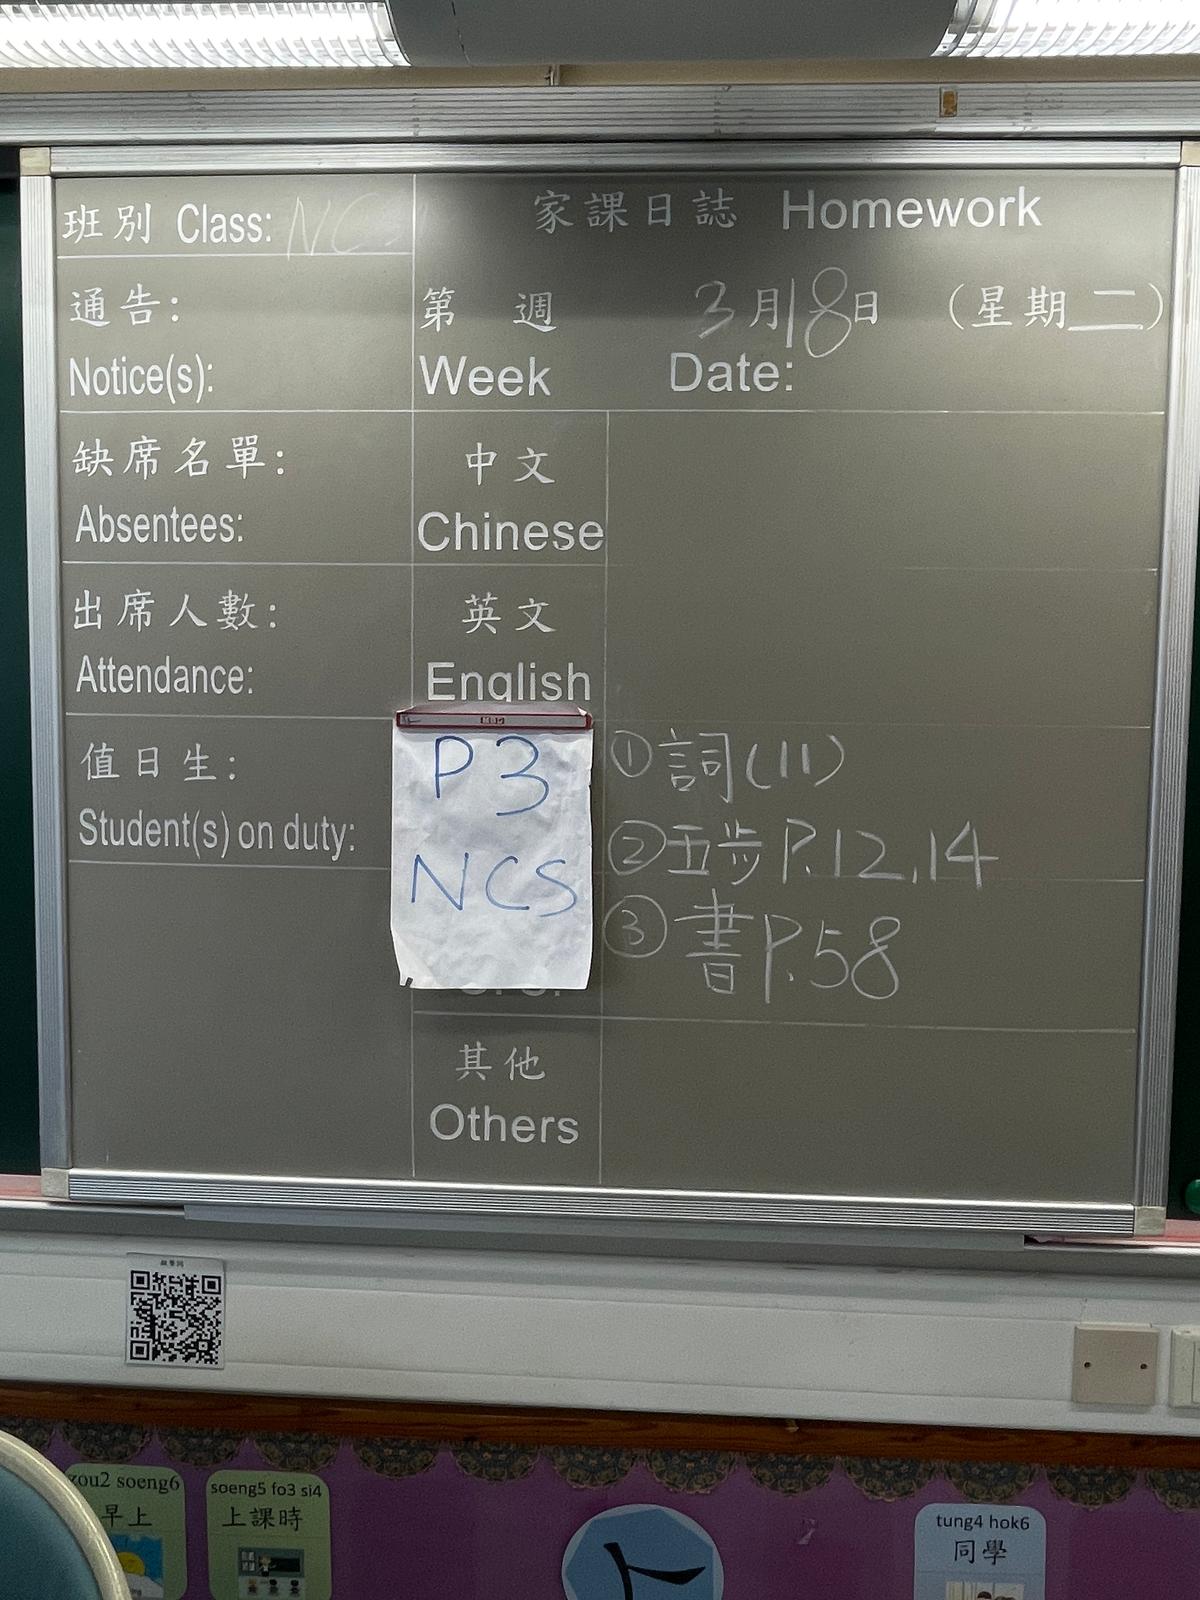 班別 Class: NCS
家課日誌 Homework
通告:
Notice(s):
第 週 3月18日 (星期二)
Week Date:
缺席名單:
Absentees:
中文
Chinese
出席人數:
Attendance:
英文
English
值日生:
Student(s) on duty:
P3
NCS
①詞(11)
②五步P.12,14
③書P.58
其他
Others
zou2 soeng6
早上
soeng5 fo3 si4
上課時
tung4 hok6
同學